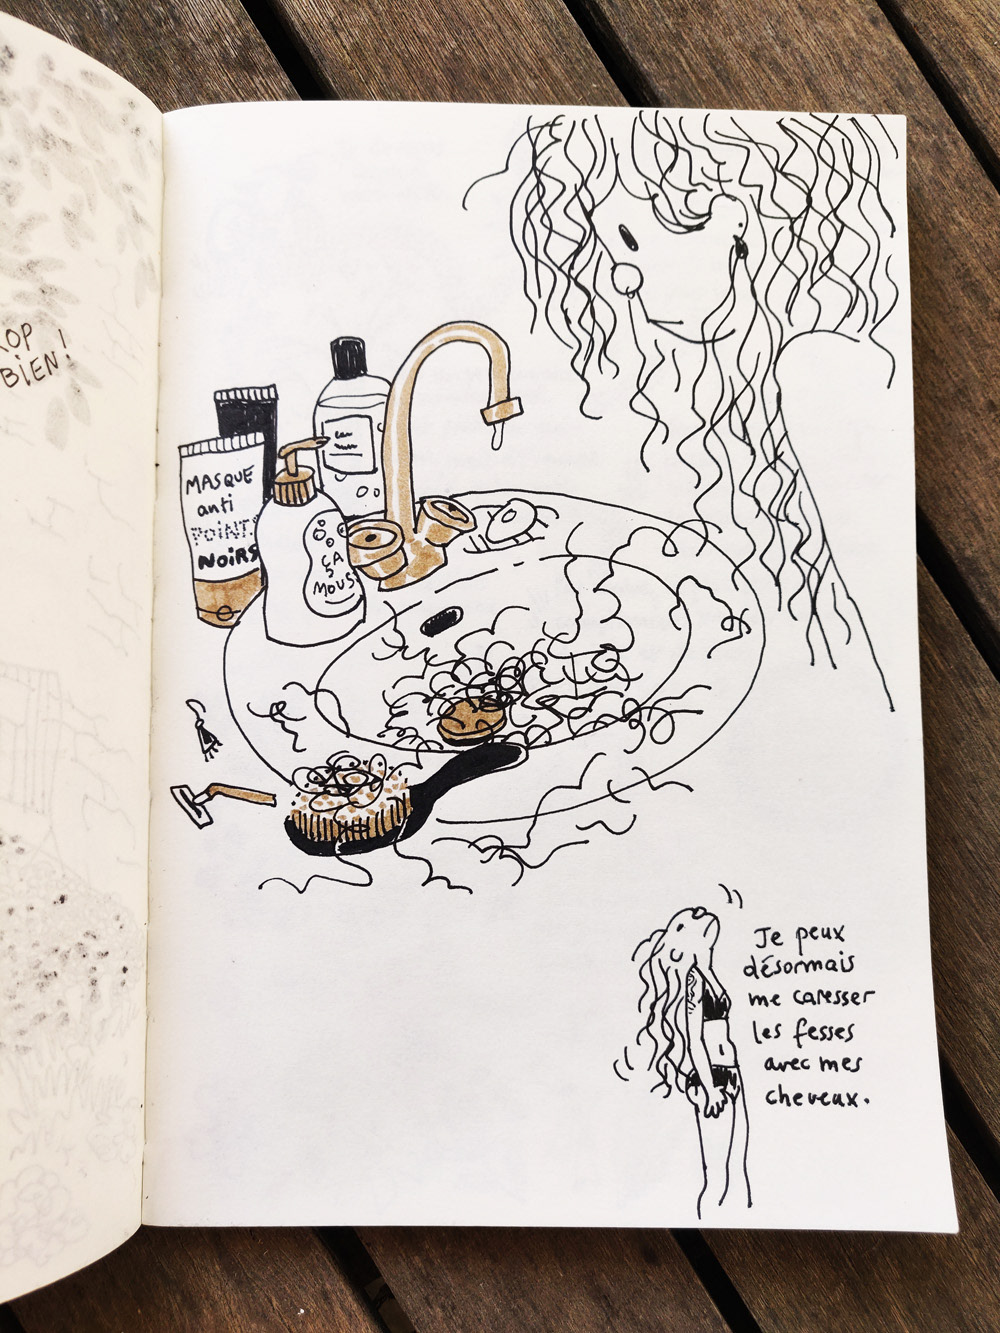 BIEN!
MASQUE
anti
POINTS
NOIRS
eau
ÇA
MOUSS
Je peux
désormais
me caresser
les fesses
avec mes
cheveux.